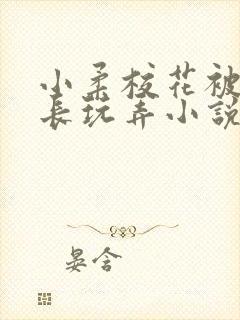 小柔校花被
长玩弄小說
晏含